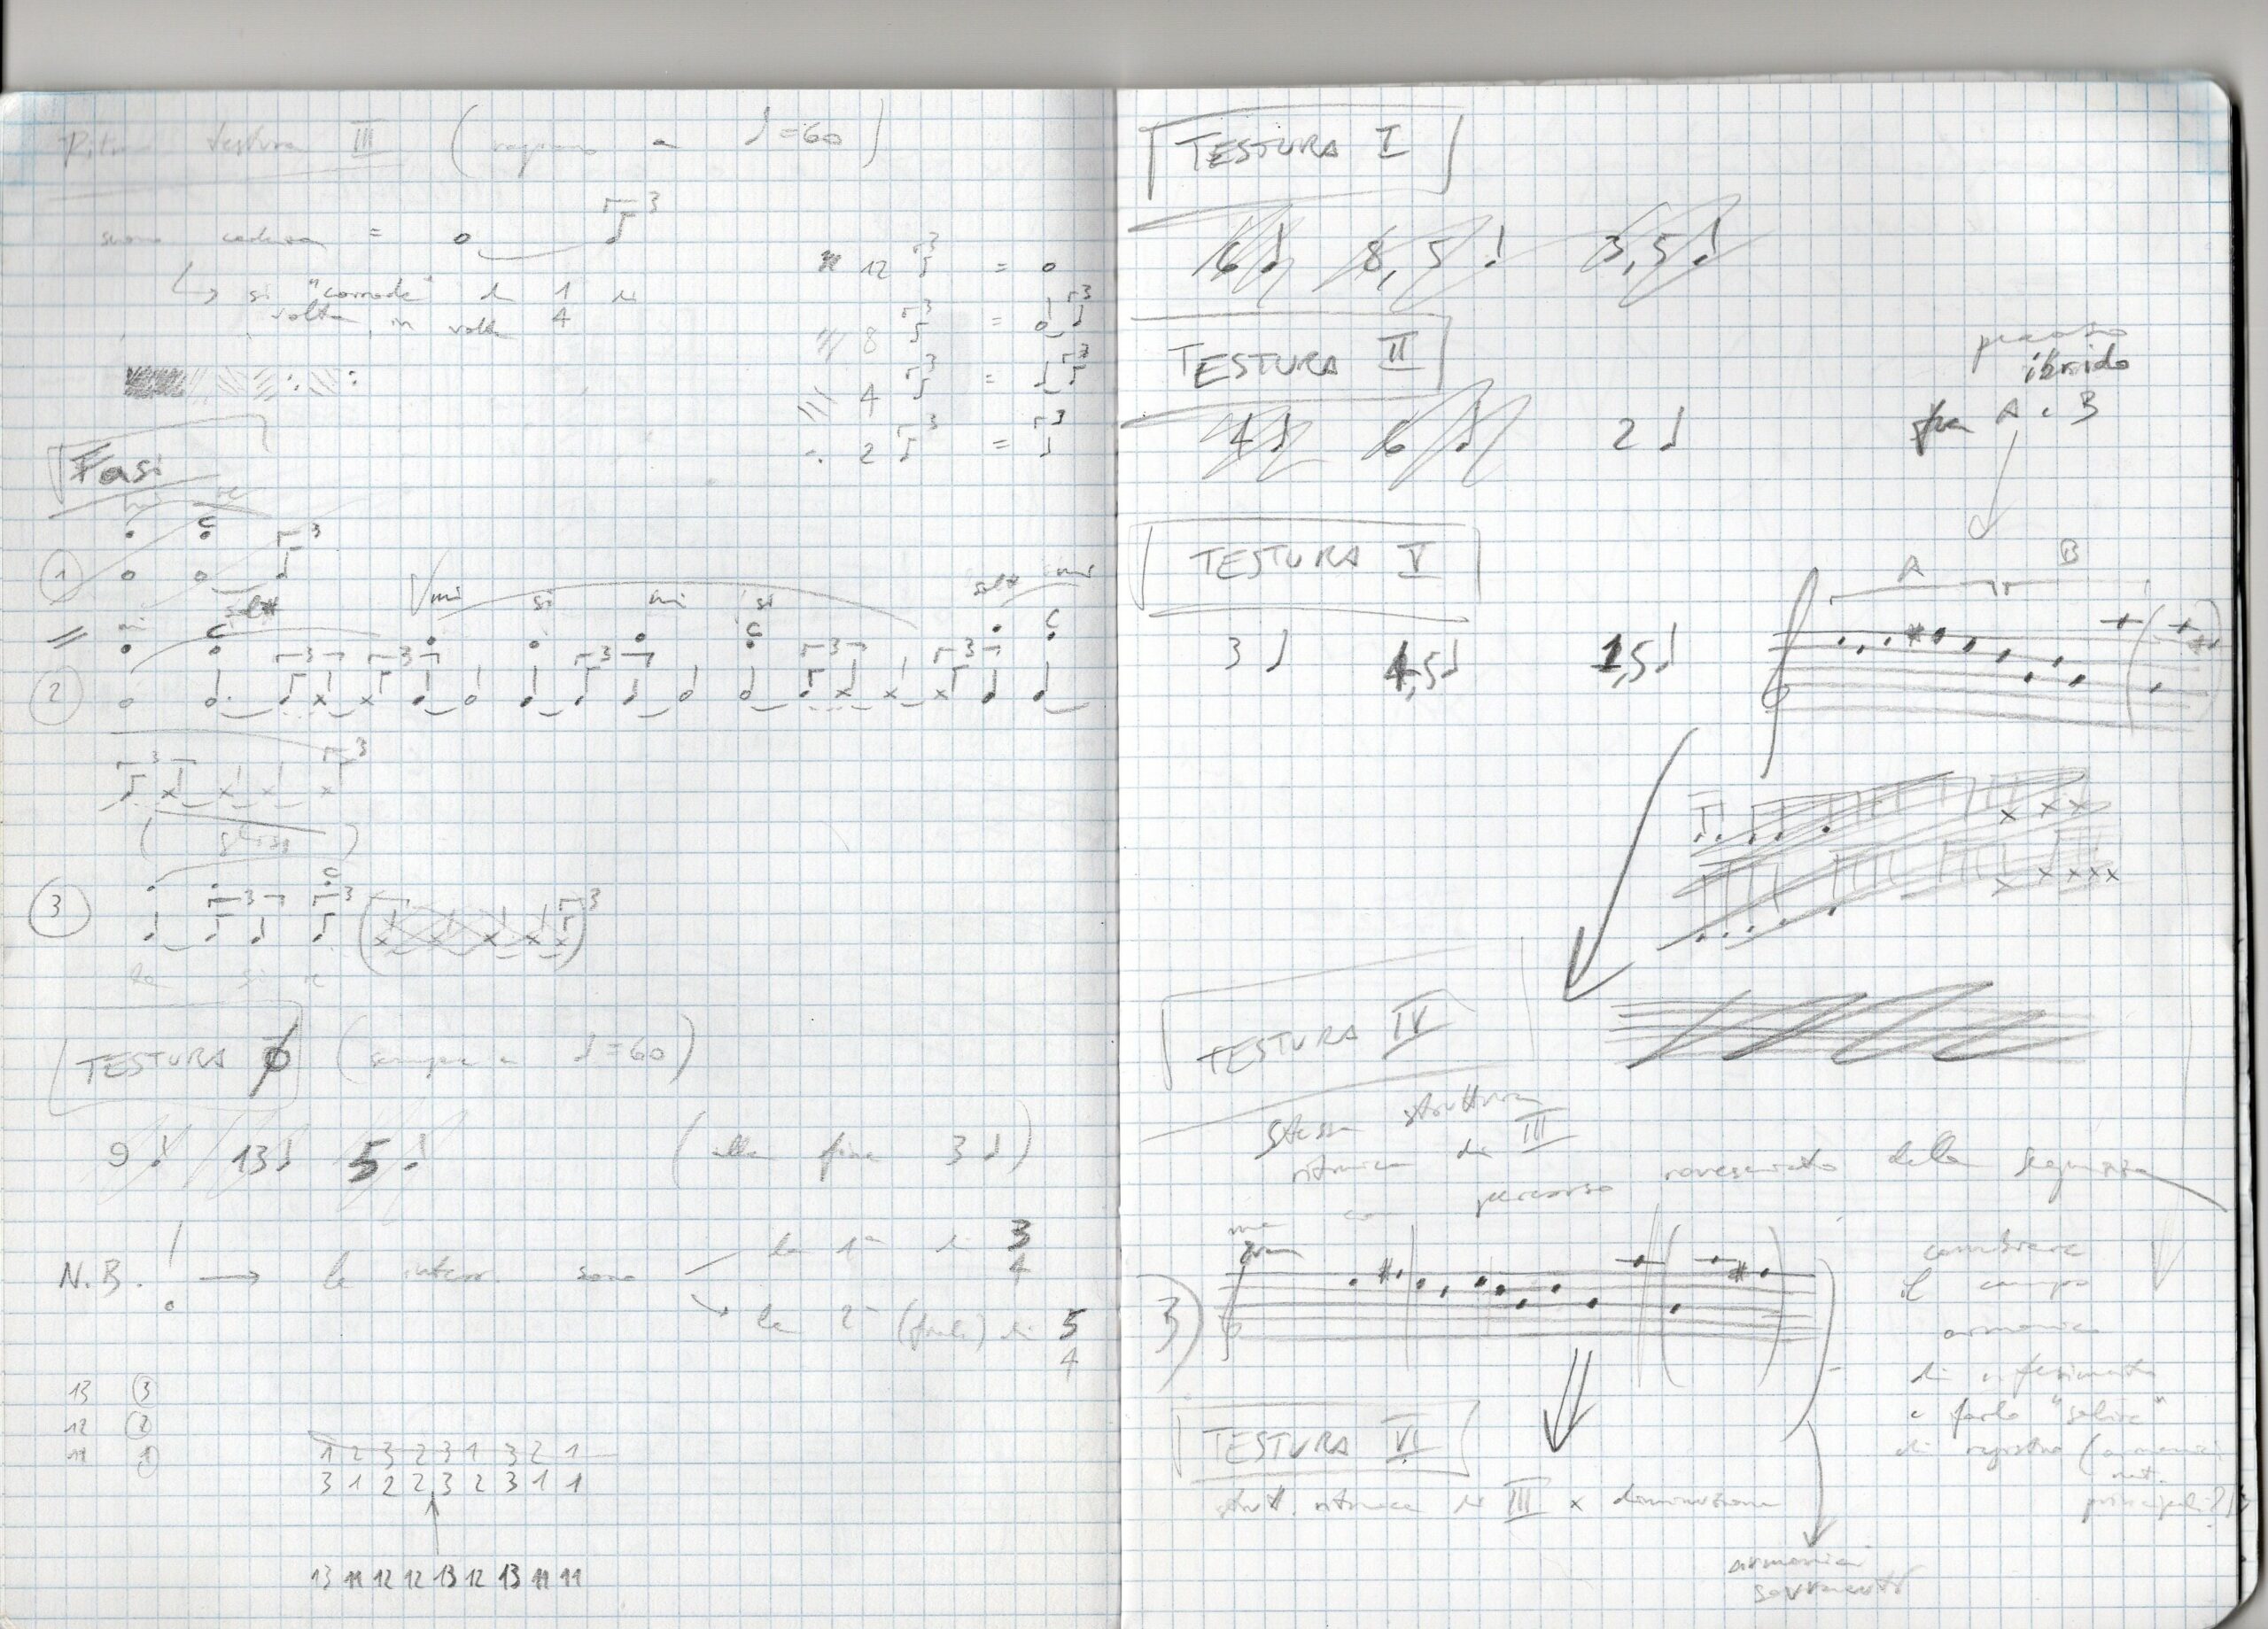 testura III ( a ♩=60)
=
↳ si "corrode" di 1 di
volta in volta 4
12 = 𝅝
8 =
4 =
2 =
Fasi
①
mi sol#
mi si mi si sol# mi
②
3 3 3 3 3 3
3 3
( gliss )
③
3 3 3
si
TESTURA Ø (sempre a ♩=60)
9♩ 13♩ 5♩ (alla fine 3♩)
N.B. ! → le interr. sono
la 1ª di 3/4
la 2ª di 5/4
13 ③
12 ②
11 ①
1 2 3 2 3 1 3 2 1
3 1 2 2 3 2 3 1 1
13 11 12 12 13 12 13 11 11
TESTURA I
6♩ 8,5♩ 3,5♩
TESTURA II
4♩ 6♩ 2♩
ibrido
fra A e B
TESTURA V
3♩ 4,5♩ 1,5♩
A B
TESTURA IV
stessa struttura
ritmica di III
ma con percorso rovesciato della sequenza
3)
cambiare
il campo
armonico
di riferimento
e farlo "salire"
di registro (armonici
nat.
principali?)
TESTURA VI
strutt. ritmica di III x diminuzione
armonici